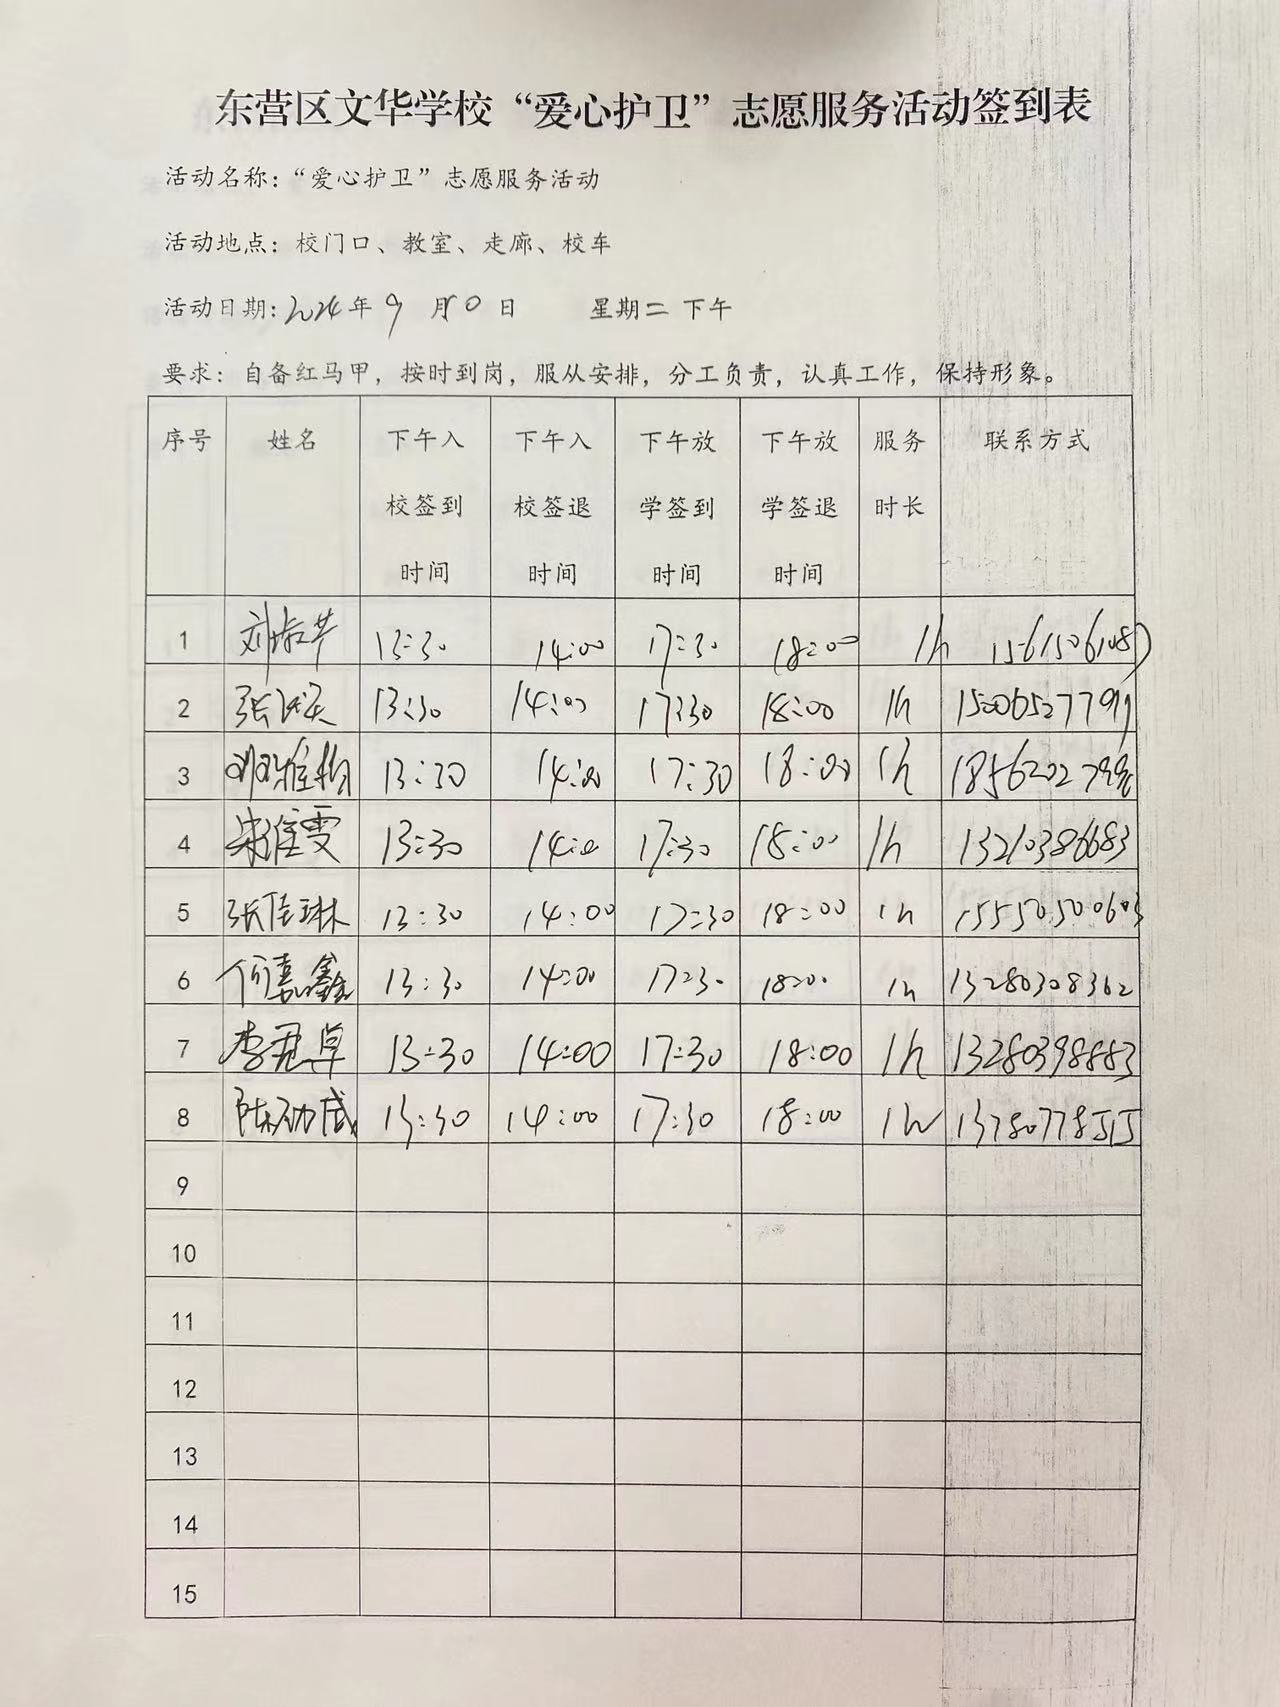 东营区文华学校“爱心护卫”志愿服务活动签到表
活动名称：“爱心护卫”志愿服务活动
活动地点：校门口、教室、走廊、校车
活动日期：2024年9月10日 星期二 下午
要求：自备红马甲，按时到岗，服从安排，分工负责，认真工作，保持形象。
序号 姓名 下午入校签到时间 下午入校签退时间 下午放学签到时间 下午放学签退时间 服务时长 联系方式
1 13:30 14:00 17:30 18:00 1h
2 13:30 14:00 17:30 18:00 1h
3 13:30 14:00 17:30 18:00 1h
4 13:30 14:00 17:30 18:00 1h 13210386683
5 张佳琳 13:30 14:00 17:30 18:00 1h 15550500603
6 何嘉鑫 13:30 14:00 17:30 18:00 1h 13280308362
7 李君卓 13:30 14:00 17:30 18:00 1h 13280398883
8 13:30 14:00 17:30 18:00 1h
9
10
11
12
13
14
15